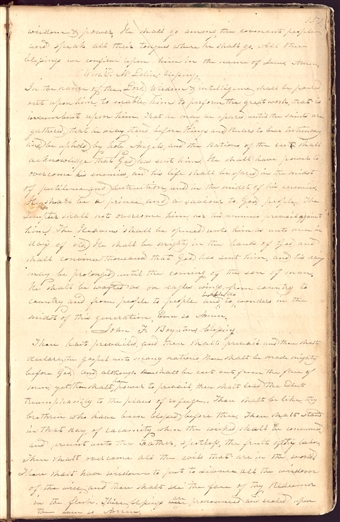 wisdom & power, He shall go among the covenant people
and speak all their tongues where he shall go. All these
blessings we confirm upon him in the name of Jesus. Amen.
blessing.
In the name of the Lord, wisdom & intelligence shall be poured
out upon him, to enable him to perform the great work that is
incumbent upon him. That he may be spared until the saints are
gathered, that he may stand before kings and rulers to bear testimony
and be upheld by holy Angels, and the nations of the earth shall
acknowledge that God has sent him, He shall have power to
overcome his enemies, and his life shall be spared in the midst
of pestilence and destruction and in the midst of his enemies.
He shall be a prince and a savior to God's people. The
tempter shall not overcome him, nor his enemies prevail against
him, The Heavens shall be opened unto him, as unto men in
days of old. He shall be mighty in the hands of God, and
shall convince thousands that God has sent him, and his days
may be prolonged until the coming of the son of man.
He shall be wafted as on eagles wings from country to
country and from people to people and be enabled to do wonders in the
midst of this generation. Even so Amen.
John F. Boynton's blessing
Thou hast prevailed, and thou shalt prevail and thou shalt
declare the gospel unto many nations thou shalt be made mighty
before God, and although shalt be cast out from the face of
men, yet thou shalt have power to prevail, thou shalt lead the Elect
triumphantly to the places of refuge. Thou shalt be like thy
brethren who have been blessed before thee, Thou shalt stand
in that day of calamity when the wicked shall be consumed
and present unto the Father, spotless, the fruits of thy labor.
Thou shalt overcome all the evils that are in the world,
Thou shalt have wisdom to put to silence all the wisdom
of the wise, and thou shalt see the face of thy Redeemer
in the flesh. These blessings are pronounced and sealed upon
thee even so Amen.